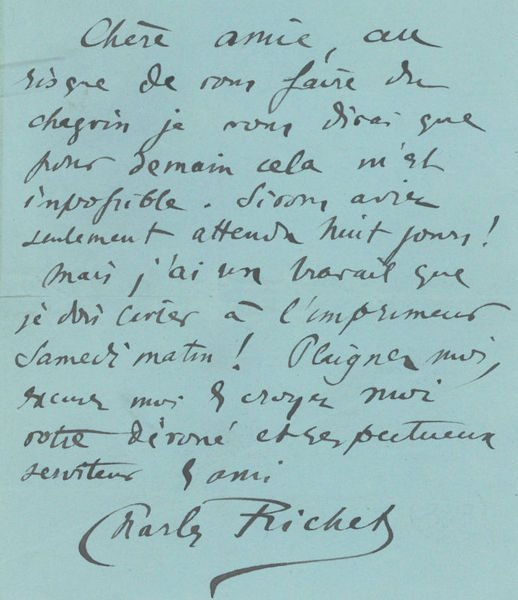 Chère amie, au
risque de vous faire du
chagrin je vous dirai que
pour demain cela m'est
impossible. Si vous aviez
seulement attendu huit jours!
Mais j'ai un travail que
je dois livrer à l'imprimeur
Samedi matin! Plaignez moi,
excusez moi & croyez moi
votre dévoué et respectueux
serviteur & ami
Charles Richet